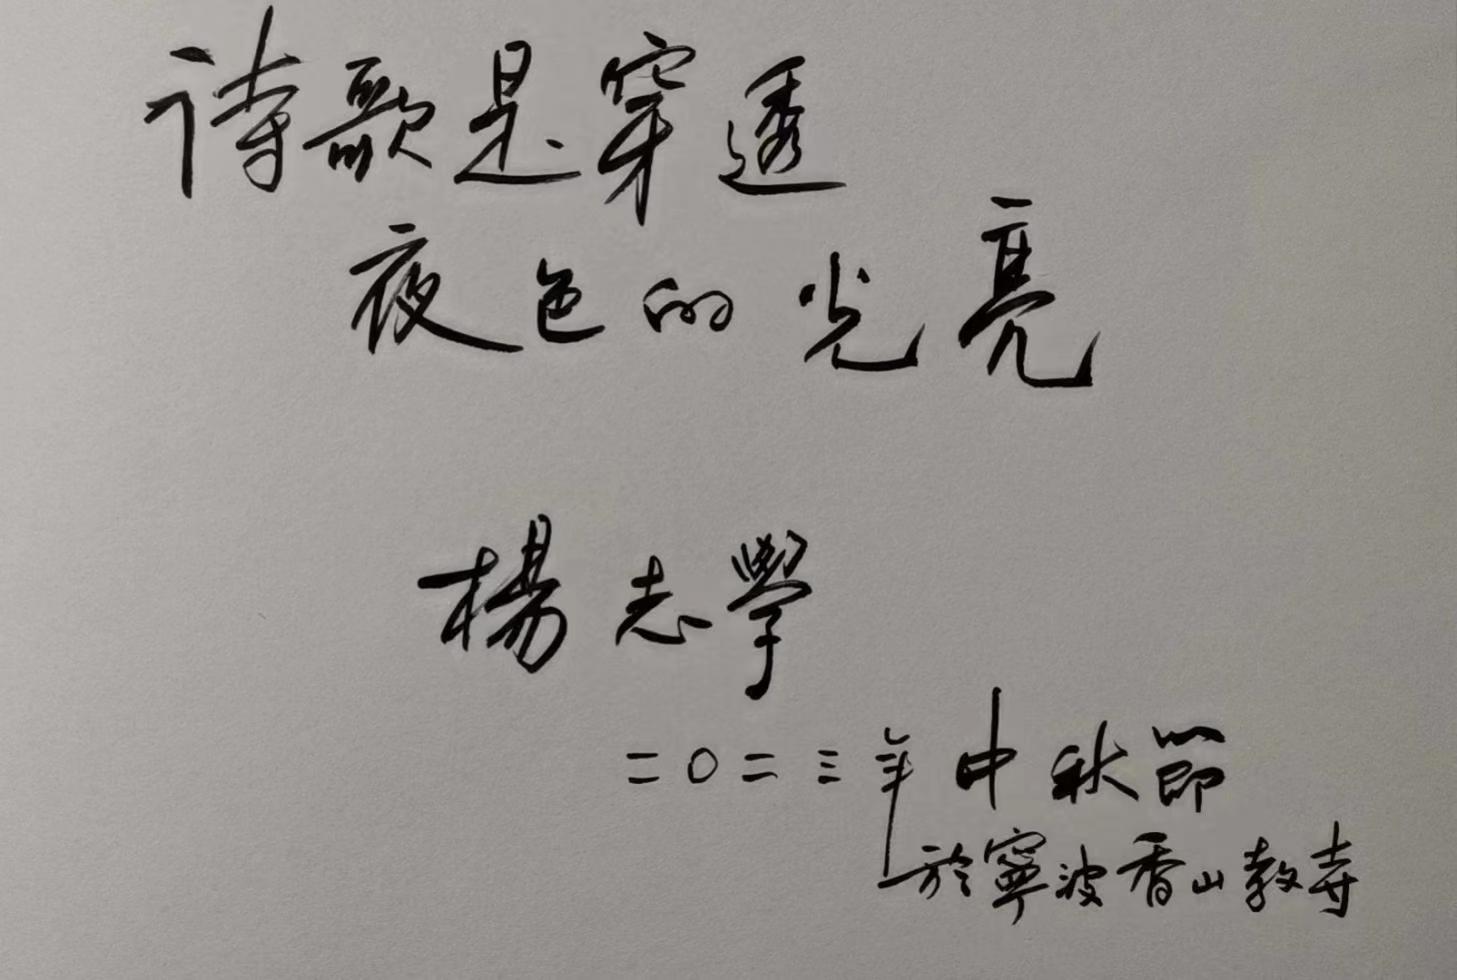 诗歌是穿透
夜色的光亮
楊志學
二〇二三年中秋節
於寧波香山教寺